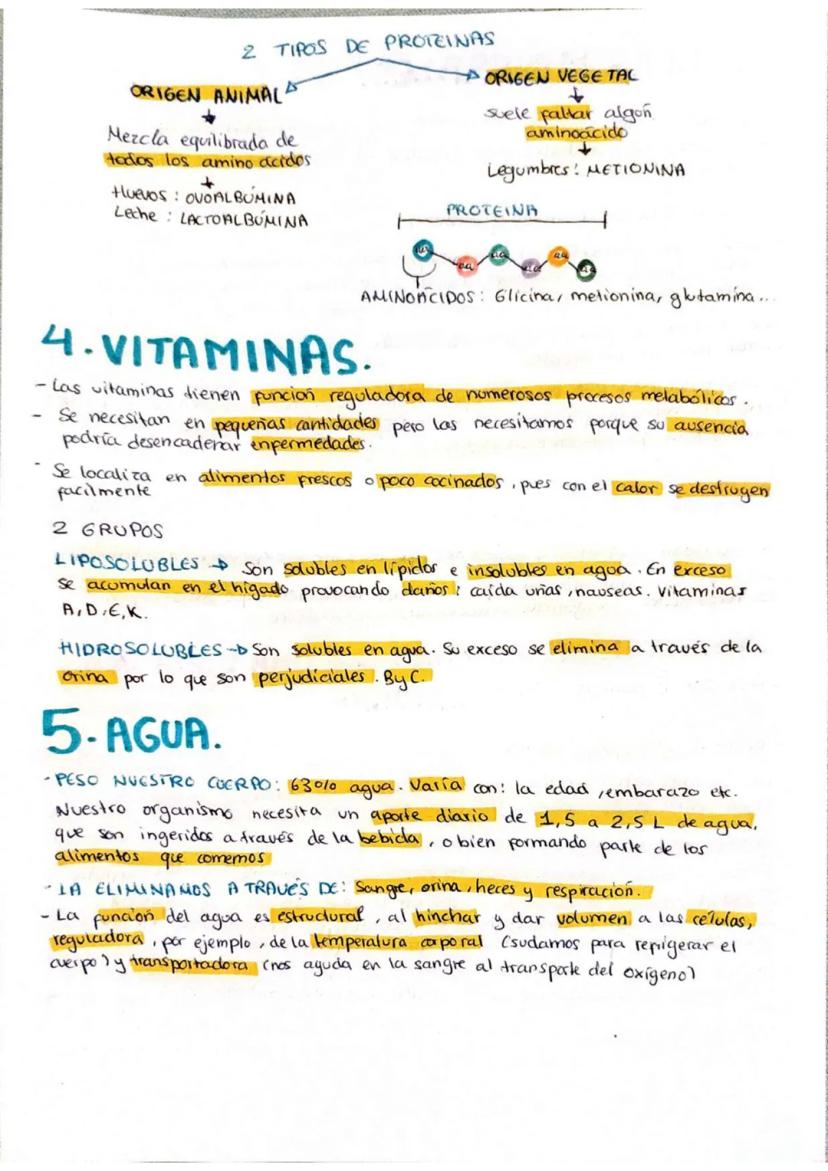 2 TIPOS DE PROTEINAS
ORIGEN ANIMAL
Mezcla equilibrada de
todos los amino acidos
Huevos : OVOALBÚMINA
Leche : LACTOALBÚMINA
ORIGEN VEGETAL
suele faltar algún
aminoácido
Legumbres : METIONINA
PROTEINA
aa aa aa aa aa aa
AMINOÁCIDOS : Glicina, metionina, glutamina...
4. VITAMINAS.
- Las vitaminas tienen función reguladora de numerosos procesos metabólicos.
- Se necesitan en pequeñas cantidades pero las necesitamos porque su ausencia
podría desencadenar enfermedades.
- Se localiza en alimentos frescos o poco cocinados, pues con el calor se destruyen
facilmente
2 GRUPOS
LIPOSOLUBLES → Son solubles en lípidos e insolubles en agua. En exceso
se acumulan en el hígado provocando daños : caída uñas, nauseas. Vitaminas
A, D, E, K.
HIDROSOLUBLES → Son solubles en agua. Su exceso se elimina a través de la
orina por lo que son perjudiciales. B y C.
5. AGUA.
- PESO NUESTRO CUERPO: 63% agua. Varía con: la edad, embarazo etc.
Nuestro organismo necesita un aporte diario de 1,5 a 2,5 L de agua,
que son ingeridos a través de la bebida, o bien formando parte de los
alimentos que comemos
- LA ELIMINAMOS A TRAVÉS DE: Sangre, orina, heces y respiración.
- La función del agua es estructural, al hinchar y dar volumen a las células,
reguladora, por ejemplo, de la temperatura corporal (sudamos para refrigerar el
cuerpo) y transportadora (nos aguda en la sangre al transporte del oxígeno)